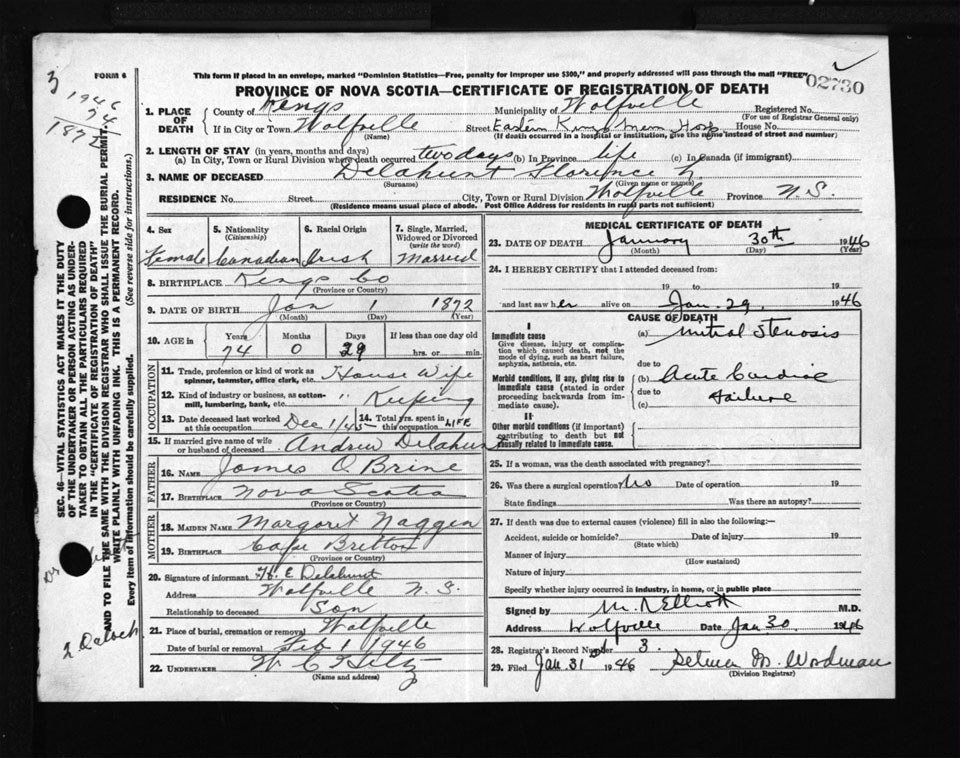 3
FORM 6
1946
74
1872
This form if placed in an envelope, marked "Dominion Statistics—Free, penalty for improper use $300," and properly addressed will pass through the mail "FREE"
02730
PROVINCE OF NOVA SCOTIA—CERTIFICATE OF REGISTRATION OF DEATH
1. PLACE OF DEATH
County of Kings Municipality of Wolfville Registered No.
(For use of Registrar General only)
If in City or Town Wolfville Street Eastern Kings Mem Hosp House No.
(Name) (If death occurred in a hospital or institution, give the name instead of street and number)
2. LENGTH OF STAY (in years, months and days)
(a) In City, Town or Rural Division where death occurred two days (b) In Province life (c) In Canada (if immigrant)
3. NAME OF DECEASED Delahunt Florence
(Surname) (Given name or names)
RESIDENCE No. Street City, Town or Rural Division Wolfville Province N.S.
(Residence means usual place of abode. Post Office Address for residents in rural parts not sufficient)
4. Sex
Female
5. Nationality
(Citizenship)
Canadian
6. Racial Origin
Irish
7. Single, Married, Widowed or Divorced
(write the word)
Married
8. BIRTHPLACE Kings Co
(Province or Country)
9. DATE OF BIRTH Jan 1 1872
(Month) (Day) (Year)
10. AGE in
Years Months Days If less than one day
74 0 29 hrs. or min.
OCCUPATION
11. Trade, profession or kind of work as spinner, teamster, office clerk, etc. House Wife
12. Kind of industry or business, as cotton-mill, lumbering, bank, etc. " Keeping
13. Date deceased last worked at this occupation Dec 1/45
14. Total yrs. spent in this occupation LIFE
15. If married give name of wife or husband of deceased Andrew Delahunt
FATHER
16. NAME James O Brine
17. BIRTHPLACE Nova Scotia
(Province or Country)
MOTHER
18. MAIDEN NAME Margarit Naggen
19. BIRTHPLACE Cape Britton
(Province or Country)
20. Signature of informant H. E. Delahunt
Address Wolfville N.S.
Relationship to deceased Son
21. Place of burial, cremation or removal Wolfville
Date of burial or removal Feb 1 1946
22. UNDERTAKER W C Hiltz
(Name and address)
MEDICAL CERTIFICATE OF DEATH
23. DATE OF DEATH January 30th 1946
(Month) (Day) (Year)
24. I HEREBY CERTIFY that I attended deceased from:
19 to 19
and last saw her alive on Jan. 29. 1946
CAUSE OF DEATH
I
Immediate cause
Give disease, injury or complication which caused death, not the mode of dying, such as heart failure, asphyxia, asthenia, etc.
(a) Mitral Stenosis
due to
Morbid conditions, if any, giving rise to immediate cause (stated in order proceeding backwards from immediate cause).
(b) Acute Cardiac
due to Failure
(c)
II
Other morbid conditions (if important) contributing to death but not causally related to immediate cause.
25. If a woman, was the death associated with pregnancy?
26. Was there a surgical operation? No Date of operation 19
State findings Was there an autopsy?
27. If death was due to external causes (violence) fill in also the following:—
Accident, suicide or homicide? Date of injury 19
(State which)
Manner of injury
(How sustained)
Nature of injury
Specify whether injury occurred in industry, in home, or in public place
Signed by M. R Elliott M.D.
Address Wolfville Date Jan 30. 1946
28. Registrar's Record Number 3.
29. Filed Jan 31 1946 Selmer M. Woodman
(Division Registrar)
SEC. 46—VITAL STATISTICS ACT MAKES IT THE DUTY
OF THE UNDERTAKER OR PERSON ACTING AS UNDER-
TAKER TO OBTAIN ALL THE PARTICULARS REQUIRED
IN THE "CERTIFICATE OF REGISTRATION OF DEATH"
AND TO FILE THE SAME WITH THE DIVISION REGISTRAR WHO SHALL ISSUE THE BURIAL PERMIT.
WRITE PLAINLY WITH UNFADING INK. THIS IS A PERMANENT RECORD.
Every item of information should be carefully supplied. (See reverse side for instructions.)